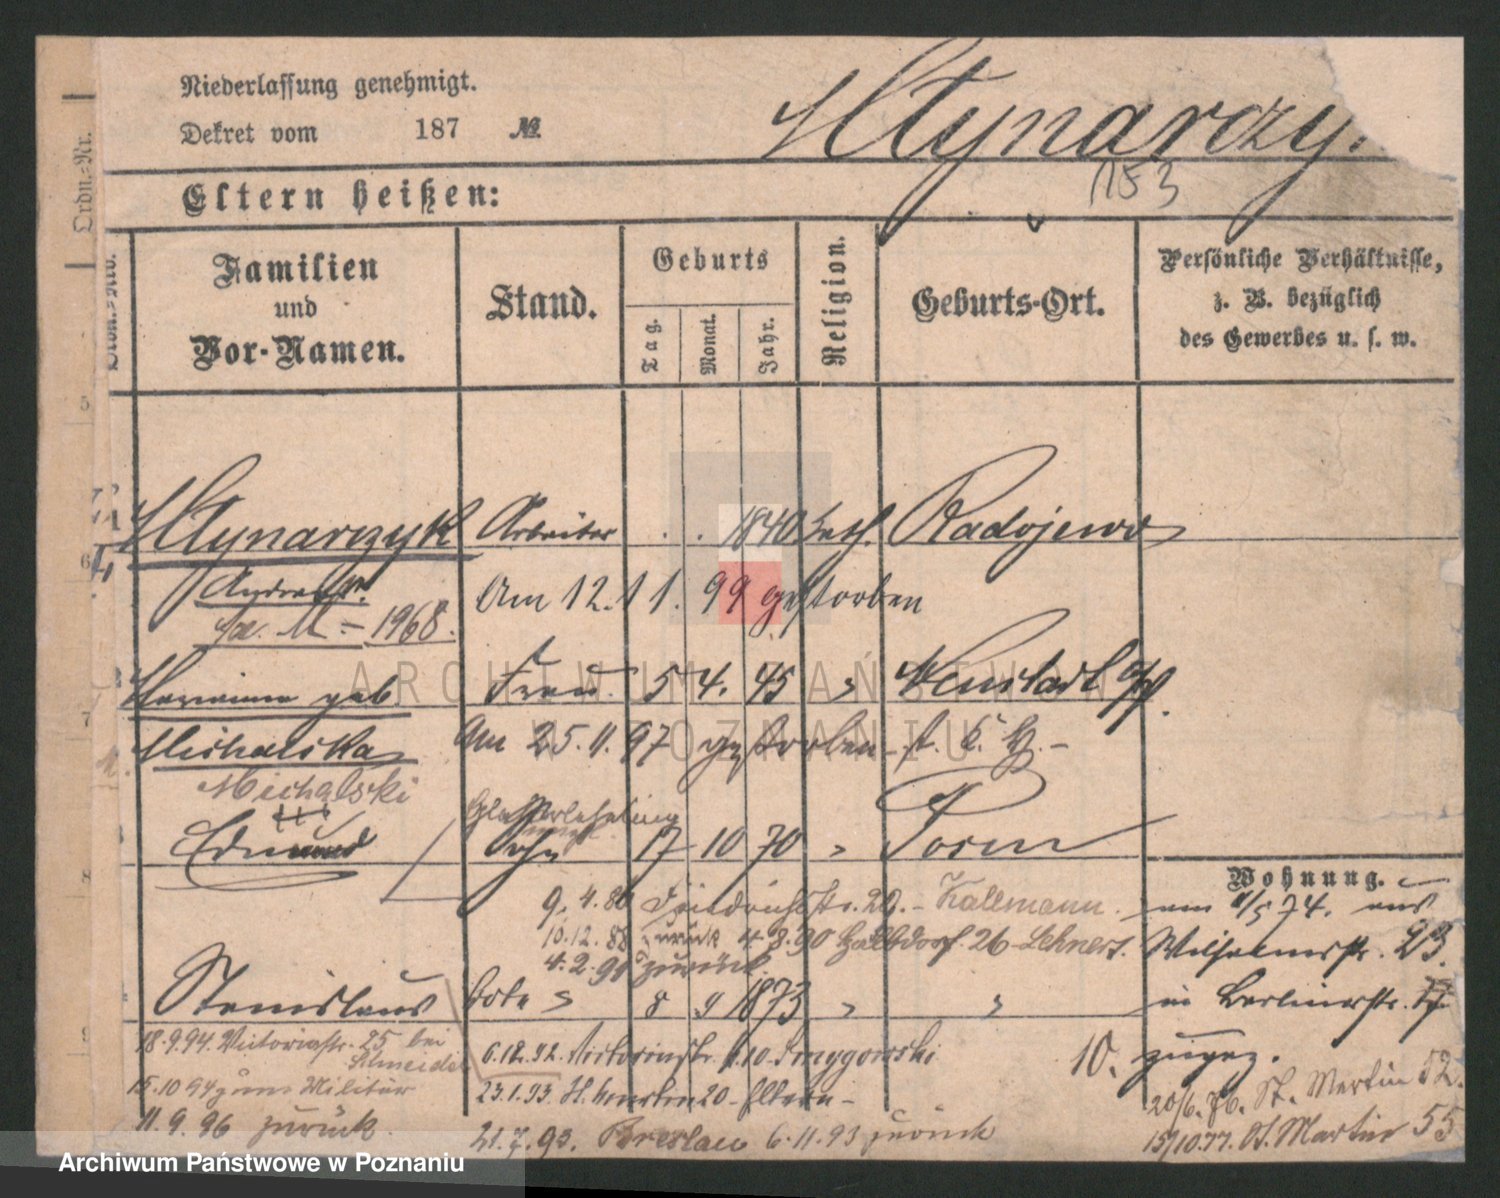 Niederlassung genehmigt.
Dekret vom 187 №
Młynarczy.
153
Eltern heißen:
Ordn.-Nr.
Familien
und
Vor-Namen.
Stand.
Geburts
Tag.
Monat.
Jahr.
Religion.
Geburts-Ort.
Persönliche Verhältnisse,
z. B. bezüglich
des Gewerbes u. s. w.
Młynarczyk Arbeiter . . 1840 kath. Radojewo
Andreas Am 12. 11. 99 gestorben
M - 1968.
Marianna geb Frau. 5 4. 45 " Neustadt
Michalska Am 25. 11. 97 gestorben
Michalski
Edmund Sohn 17 10 70 "
Wohnung.
9. 4. 86 Friedrichstr. 20. - Kallmann. am 1/5 74. aus
10.12. 88 zurück 4 8. 90 26 Lehnert. Wilhelmstr. 23.
4. 2. 91 zurück
Stanislaus Bote " 8 9 1873 " " in Berlinerstr. 17
18.9.94. Victoriastr. 25 bei
Schneider
6.12.92. Victoriastr. 10. 10. zugez.
15.10 94 zum Militär 23.1.93. 20 - Eltern - 20/6. 76. St. Martin 52.
11. 9. 96 zurück. 21.7.93. Breslau 6. 11. 93 zurück 15/10.77. St. Martin 55
ARCHIWUM PAŃSTWOWE
W POZNANIU
Archiwum Państwowe w Poznaniu